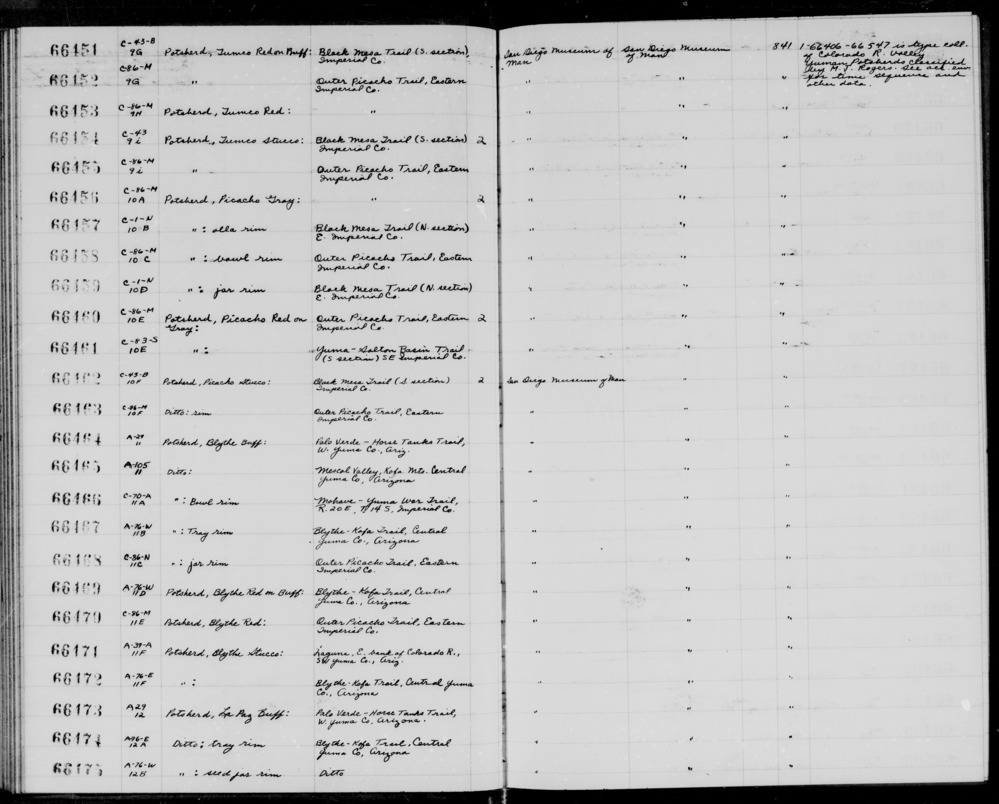 66451 C-43-B 9G Potsherd, Tumco Red on Buff: Black Mesa Trail (S. section), Imperial Co. San Diego Museum of Man San Diego Museum of Man 841 1-66406-66547 is type coll. of Colorado R. Valley Yuman Potsherds classified by M. J. Rogers. See acc. env. for time sequence and other data.
66452 C-86-M 9G " Outer Picacho Trail, Eastern Imperial Co. " " "
66453 C-86-M 9H Potsherd, Tumco Red: " " " "
66454 C-43 9i Potsherd, Tumco Stucco: Black Mesa Trail (S. section) Imperial Co. 2 " " "
66455 C-86-M 9i " Outer Picacho Trail, Eastern Imperial Co. " " "
66456 C-86-M 10A Potsherd, Picacho Gray: " 2 " " "
66457 C-1-N 10 B " : olla rim Black Mesa Trail (N. section) E. Imperial Co. " " "
66458 C-86-M 10 C " : bowl rim Outer Picacho Trail, Eastern Imperial Co. " " "
66459 C-1-N 10D " : jar rim Black Mesa Trail (N. section) E. Imperial Co. " " "
66460 C-86-M 10E Potsherd, Picacho Red on Gray: Outer Picacho Trail, Eastern Imperial Co. 2 " " "
66461 C-83-S 10E " : Yuma-Salton Basin Trail (S section) SE Imperial Co. " " "
66462 C-43-B 10F Potsherd, Picacho Stucco: Black Mesa Trail (S section) Imperial Co. 2 San Diego Museum of Man " "
66463 C-86-M 10F Ditto: rim Outer Picacho Trail, Eastern Imperial Co. " " "
66464 A-29 11 Potsherd, Blythe Buff: Palo Verde - Horse Tanks Trail, W. Yuma Co., Ariz. " " "
66465 A-105 11 Ditto: Mescal Valley, Kofa Mts. Central Yuma Co, Arizona " " "
66466 C-70-A 11A " : Bowl rim Mohave - Yuma War Trail, R. 20 E, T. 14 S, Imperial Co. " " "
66467 A-76-W 11B " : Tray rim Blythe - Kofa Trail, Central Yuma Co., Arizona " " "
66468 C-86-N 11C " : jar rim Outer Picacho Trail, Eastern Imperial Co. " " "
66469 A-76-W 11D Potsherd, Blythe Red on Buff: Blythe - Kofa Trail, Central Yuma Co., Arizona " " "
66470 C-86-M 11E Potsherd, Blythe Red: Outer Picacho Trail, Eastern Imperial Co. " " "
66471 A-39-A 11F Potsherd, Blythe Stucco: Laguna, E. bank of Colorado R., SW Yuma Co., Ariz. " " "
66472 A-76-E 11F " : Blythe-Kofa Trail, Central Yuma Co., Arizona " " "
66473 A29 12 Potsherd, La Paz Buff: Palo Verde - Horse Tanks Trail, W. Yuma Co, Arizona. " " "
66474 A76-E 12 A Ditto; tray rim Blythe-Kofa Trail, Central Yuma Co, Arizona " " "
66475 A-76-W 12B " : seed jar rim Ditto " " "